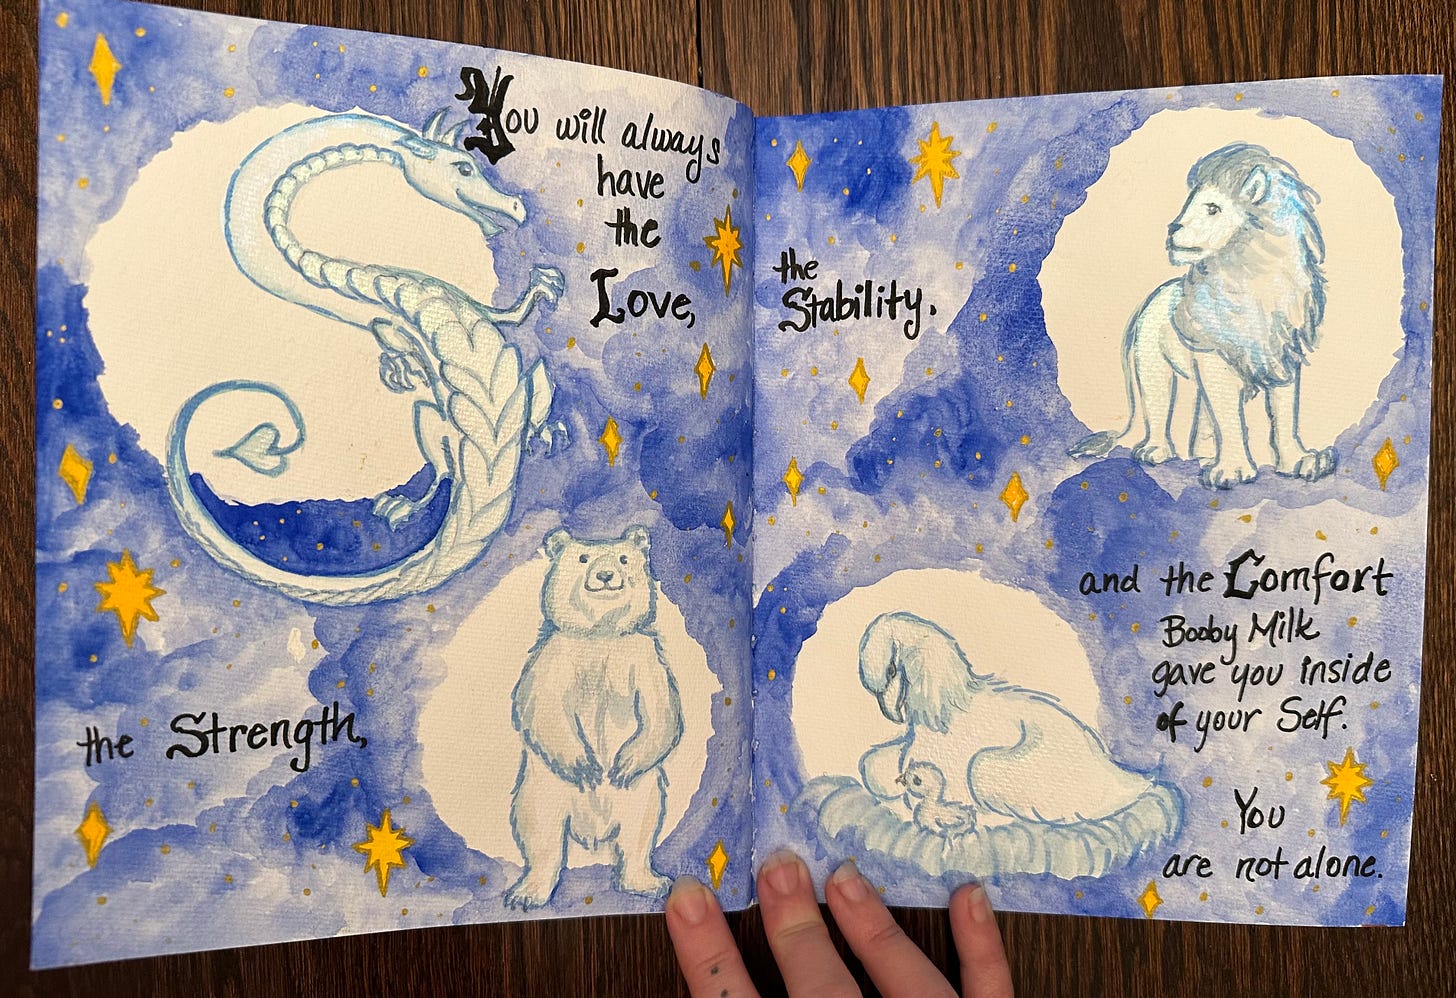 You will always
have
the
Love,
the Strength,
the
Stability.
and the Comfort
Booby Milk
gave you inside
of your Self.
You
are not alone.